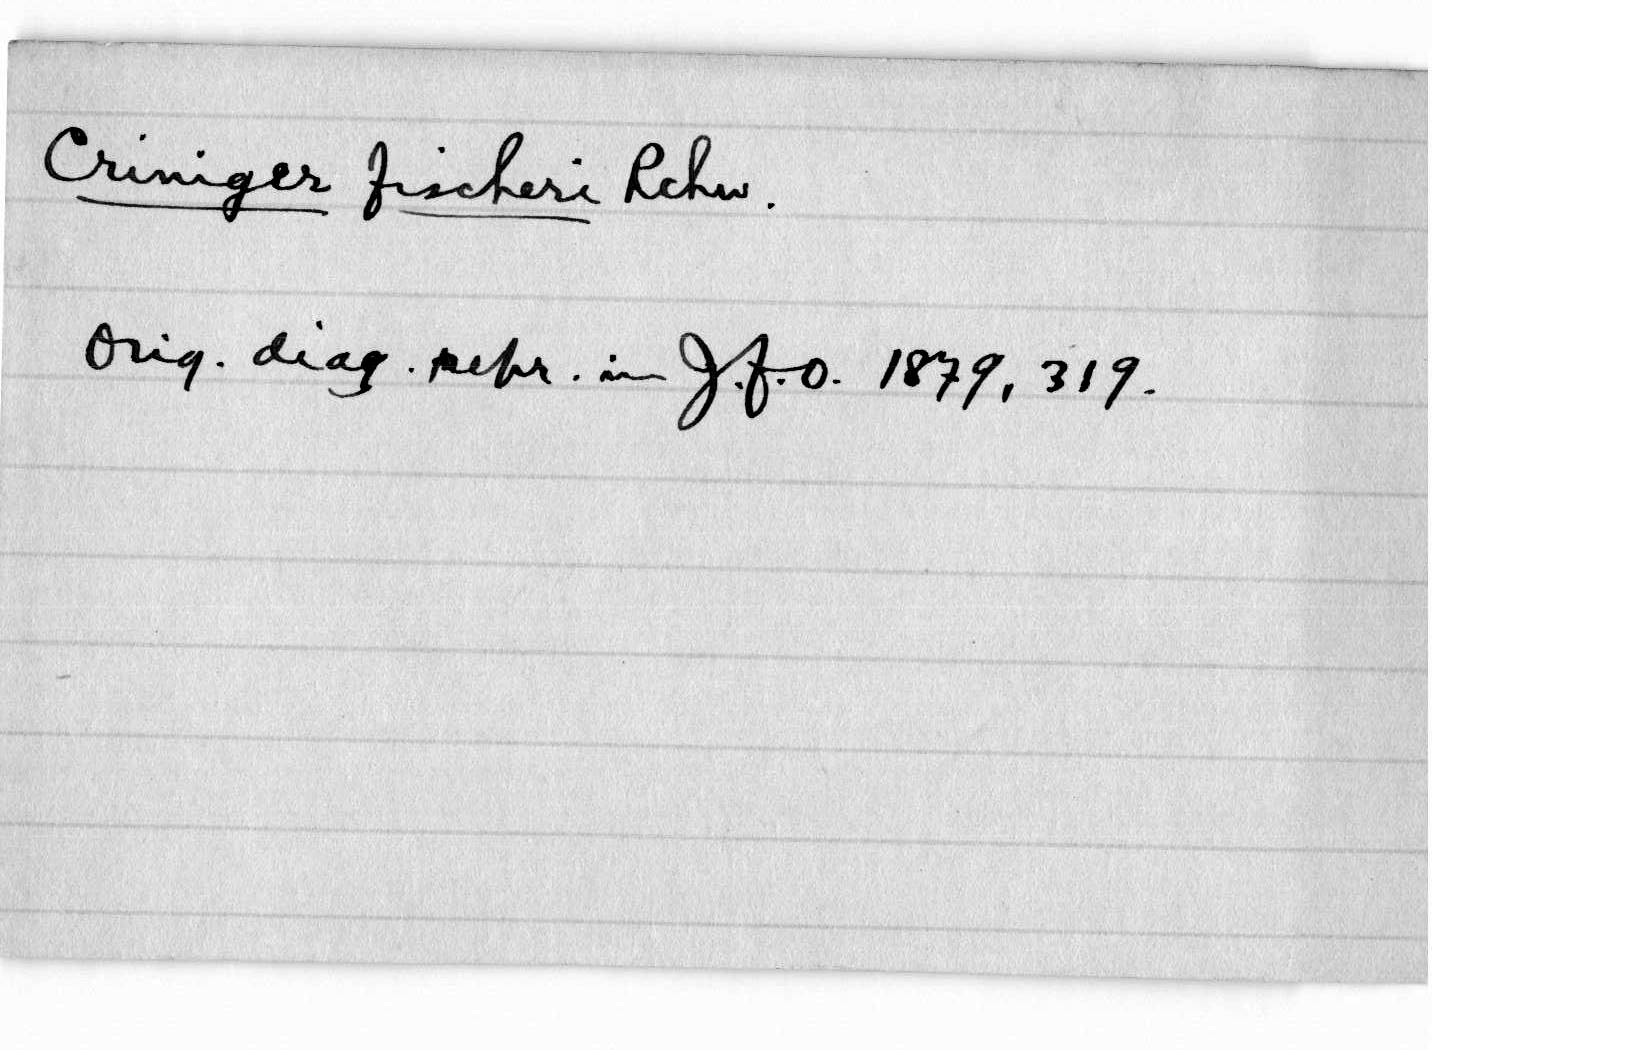 Criniger fischeri Rchw.
Orig. diag. repr. in J.f.O. 1879, 319.